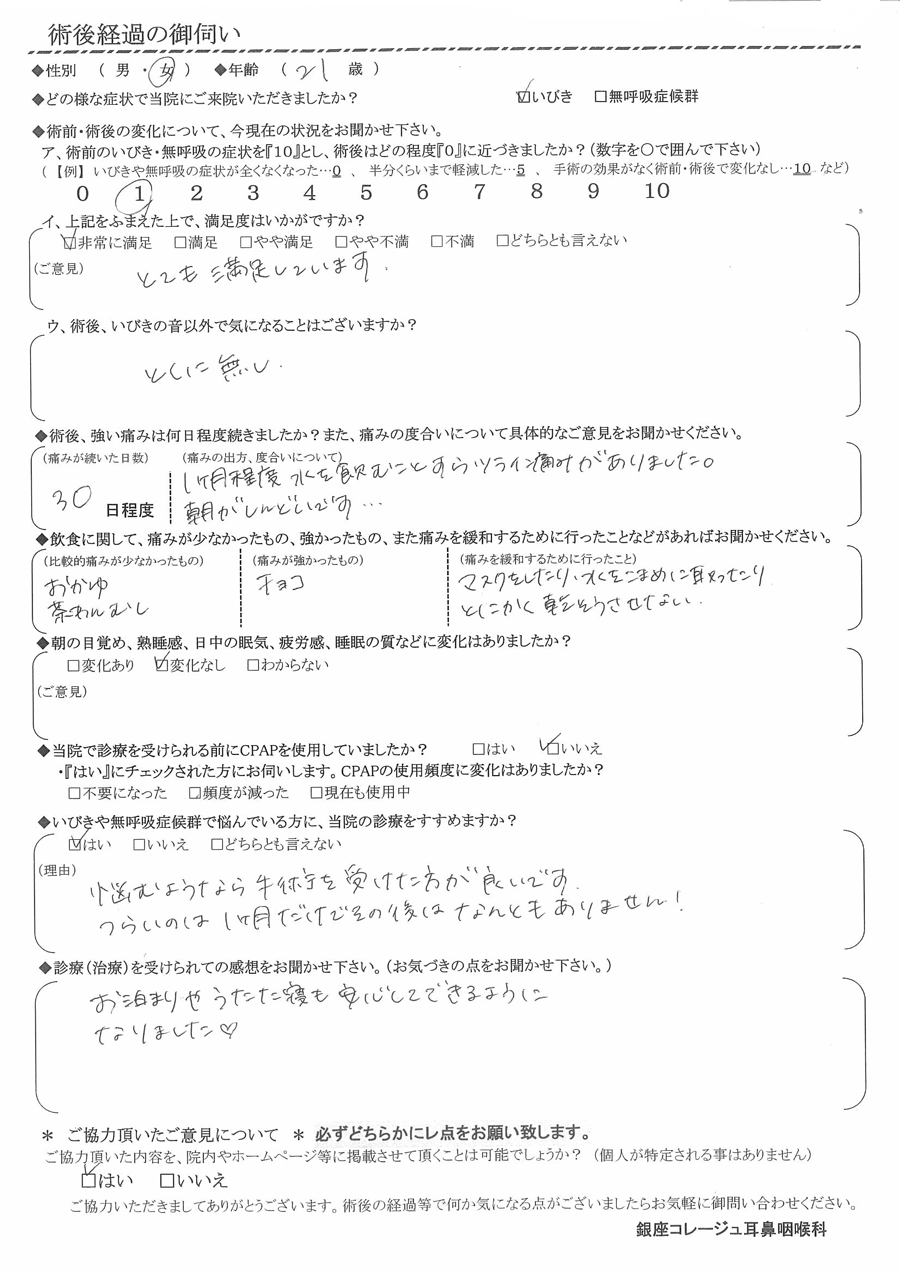 術後経過の御伺い
◆性別 （ 男 ・ 女 ） ◆年齢 （ 21 歳 ）
◆どの様な症状で当院にご来院いただきましたか？ ☑いびき □無呼吸症候群
◆術前・術後の変化について、今現在の状況をお聞かせ下さい。
ア、術前のいびき・無呼吸の症状を『10』とし、術後はどの程度『0』に近づきましたか？（数字を〇で囲んで下さい）
（【例】 いびきや無呼吸の症状が全くなくなった…0 、 半分くらいまで軽減した…5 、 手術の効果がなく術前・術後で変化なし…10 など）
0 1 2 3 4 5 6 7 8 9 10
イ、上記をふまえた上で、満足度はいかがですか？
☑非常に満足 □満足 □やや満足 □やや不満 □不満 □どちらとも言えない
（ご意見） とても満足しています.
ウ、術後、いびきの音以外で気になることはございますか？
とくに無し.
◆術後、強い痛みは何日程度続きましたか？また、痛みの度合いについて具体的なご意見をお聞かせください。
（痛みが続いた日数） （痛みの出方、度合いについて）
1ヶ月程度 水を飲むことすらツライ痛みがありました。
30 日程度 朝がしんどいです…
◆飲食に関して、痛みが少なかったもの、強かったもの、また痛みを緩和するために行ったことなどがあればお聞かせください。
（比較的痛みが少なかったもの） （痛みが強かったもの） （痛みを緩和するために行ったこと）
おかゆ チョコ マスクをしたり、水をこまめに取ったり
茶わんむし とにかく乾そうさせない.
◆朝の目覚め、熟睡感、日中の眠気、疲労感、睡眠の質などに変化はありましたか？
□変化あり ☑変化なし □わからない
（ご意見）
◆当院で診療を受けられる前にCPAPを使用していましたか？ □はい ☑いいえ
・『はい』にチェックされた方にお伺いします。CPAPの使用頻度に変化はありましたか？
□不要になった □頻度が減った □現在も使用中
◆いびきや無呼吸症候群で悩んでいる方に、当院の診療をすすめますか？
☑はい □いいえ □どちらとも言えない
（理由）
悩むようなら手術を受けた方が良いです.
つらいのは1ヶ月だけでその後はなんともありません！
◆診療（治療）を受けられての感想をお聞かせ下さい。（お気づきの点をお聞かせ下さい。）
お泊まりやうたた寝も安心してできるように
なりました♡
＊ ご協力頂いたご意見について ＊ 必ずどちらかにレ点をお願い致します。
ご協力頂いた内容を、院内やホームページ等に掲載させて頂くことは可能でしょうか？ （個人が特定される事はありません）
☑はい □いいえ
ご協力いただきましてありがとうございます。術後の経過等で何か気になる点がございましたらお気軽に御問い合わせください。
銀座コレージュ耳鼻咽喉科